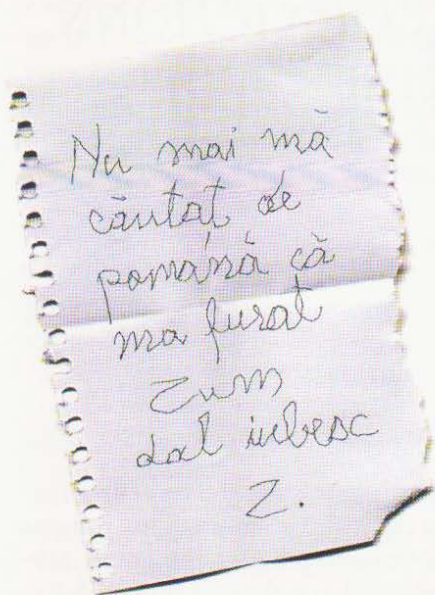 Nu mai mă
căutat de
pomană că
ma furat
Zum
dal iubesc
Z.